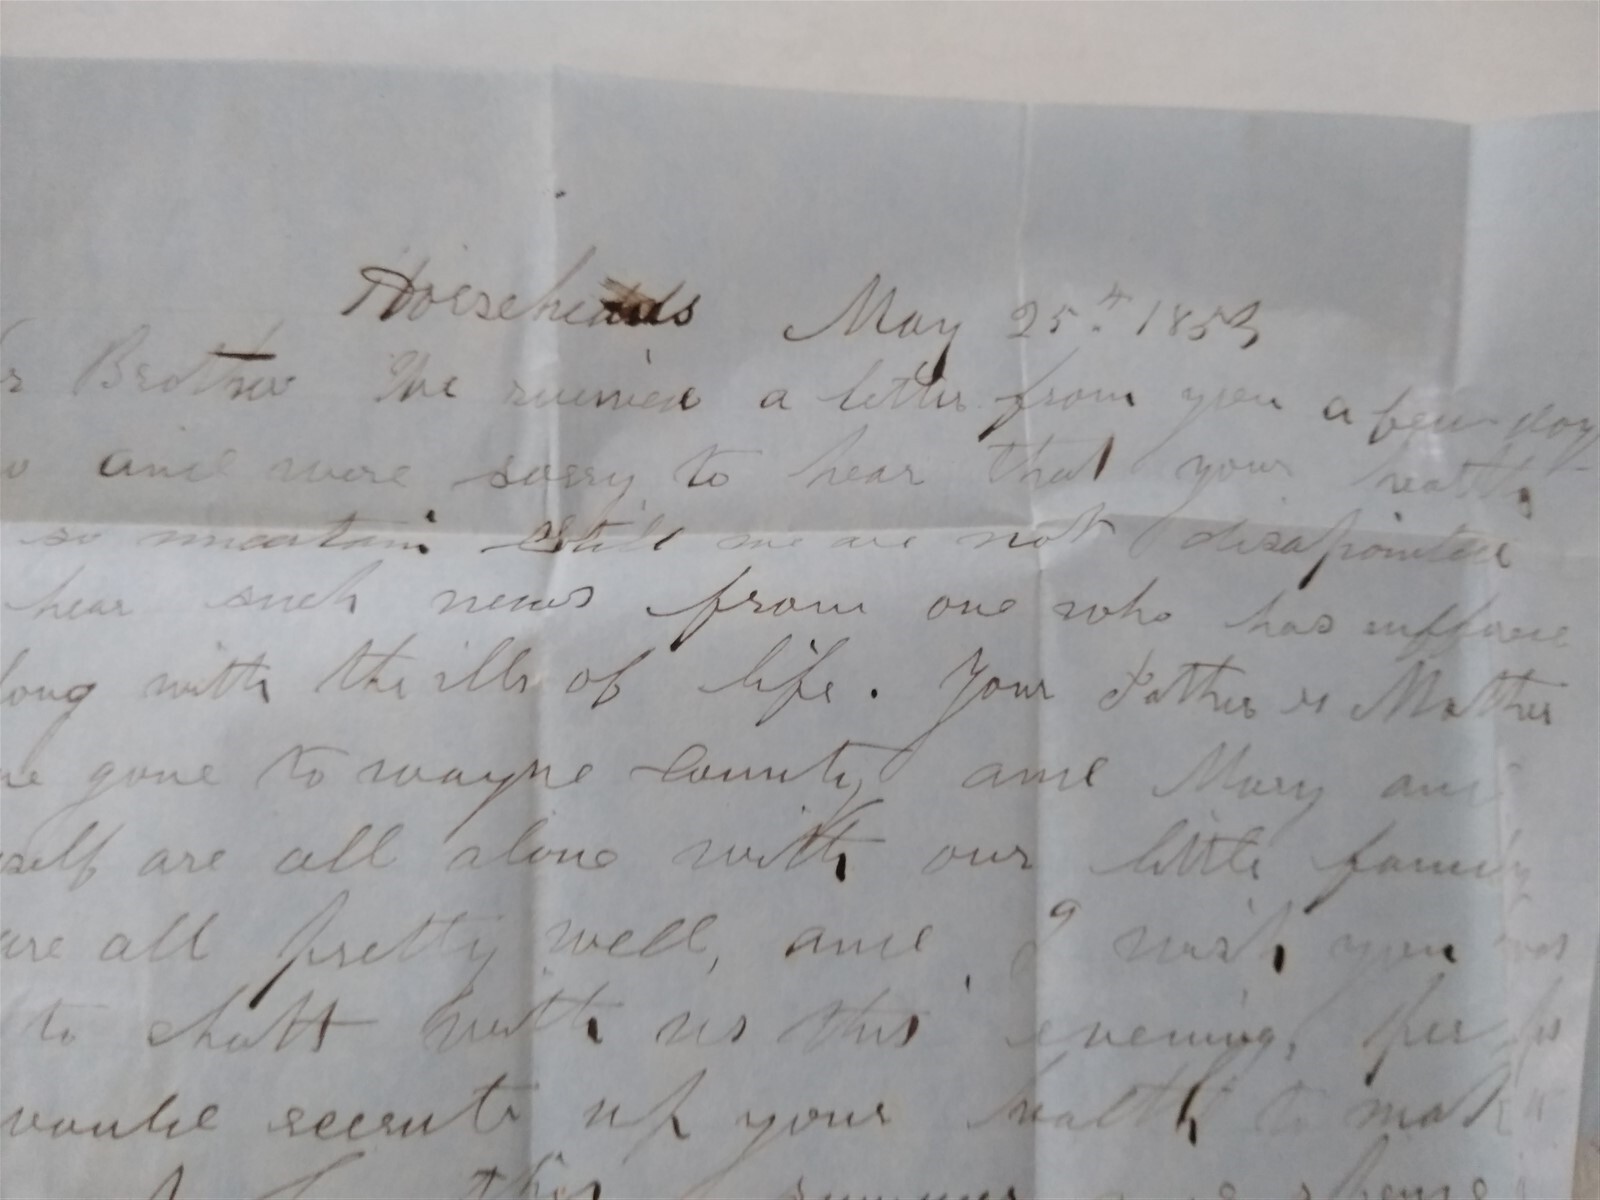 Horseheads May 25th 1853
Brother We recieved a letter from you a few day
and were sorry to hear that your health
so uncertain Still we are not disapointed
hear such news from one who has suffered
long with the ills of life. Your Father & Mother
gone to wayne County and Mary and
self are all alone with our little family
are all pretty well, and I wish you was
to chatt with us this evening, per
would recruit up your health to mak
this summer